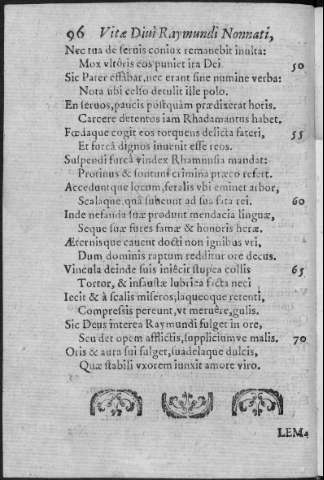 96 Vitæ Diui Raymundi Nonnati,
Nec tua de seruis coniux remanebit inulta:
Mox vltôris eos puniet ira Dei. 50
Sic Pater effâbar, nec erant sine numine verba:
Nota vbi celso detulit ille polo.
En seruos, paucis postquàm prædixerat horis.
Carcere detentos iam Rhadamantus habet.
Fœdaque cogit eos torquens delicta fateri, 55
Et furcâ dignos inuenit esse reos.
Suspendi furcâ vindex Rhamnusia mandat:
Protinus & sontum crimina præco refert.
Acceduntque locum, feralis vbi eminet arbor,
Scalaque, quâ subeunt ad sua fata rei. 60
Inde nefanda suæ produnt mendacia linguæ,
Seque suæ fures famæ & honoris heræ.
Æternisque cauent docti non ignibus vri,
Dum dominis raptum redditur ore decus.
Vincula deinde suis iniêcit stupea collis 65
Tortor, & infaustæ lubrica facta neci
Iecit & à scalis miseros, laqueoque retenti,
Compressis pereunt, vt meruêre, gulis.
Sic Deus interea Raymundi fulget in ore,
Seu det opem afflictis, suppliciumve malis. 70
Oris & aura sui fulget, suadelaque dulcis,
Quæ stabili vxorem iunxit amore viro.
LEM-